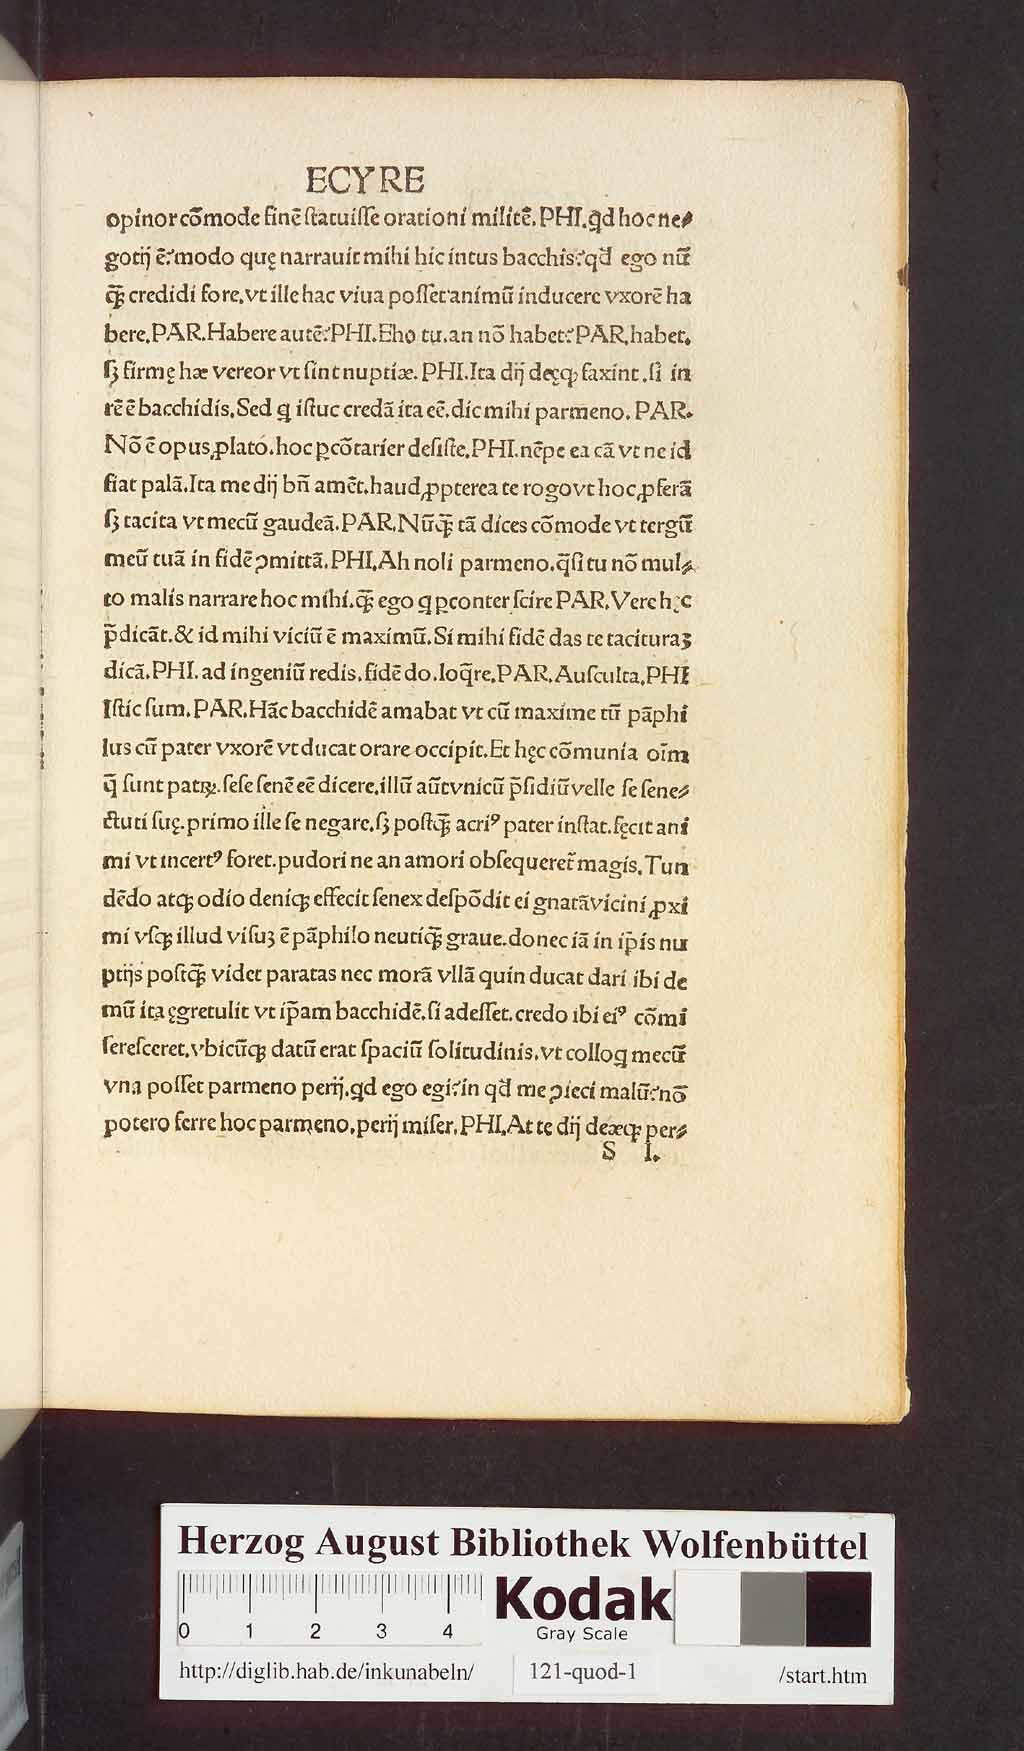 ECYRE
opinor cōmode finē ſtatuiſſe orationi militē. PHI. qd hoc ne⸗
gotij ē? modo quę narrauit mihi hic intus bacchis? qđ ego nū
q̄ꝫ credidi fore. vt ille hac viua poſſet animū inducere vxorē ha
bere. PAR. Habere autē? PHI. Eho tu. an nō habet? PAR. habet.
ſꝫ firmę hæ vereor vt ſint nuptiæ. PHI. Ita dij deęqꝫ faxint. ſi in
rē ē bacchidis. Sed q iſtuc credā ita eē. dic mihi parmeno. PAR.
Nō ē opus ꝓlato. hoc ꝑcōtarier deſiſte. PHI. nēpe ea cā vt ne id
fiat palā. Ita me dij bn̄ amēt. haud ꝓpterea te rogo vt hoc ꝓferā
ſꝫ tacita vt mecū gaudeā. PAR. Nūq̄ꝫ tā dices cōmode vt tergū
meū tuā in fidē ꝯmittā. PHI. Ah noli parmeno. q̄ſi tu nō mul⸗
to malis narrare hoc mihi. q̄ꝫ ego q ꝑconter ſcire PAR. Vere hęc
p̄dicāt. & id mihi viciū ē maximū. Si mihi fidē das te tacituraꝫ
dicā. PHI. ad ingeniū redis. fidē do. loq̄re. PAR. Auſculta. PHI
Iſtic ſum. PAR. Hāc bacchidē amabat vt cū maxime tū pāphi
lus cū pater vxorē vt ducat orare occipit. Et hęc cōmunia oīm
q̄ ſunt patrꝝ. ſeſe ſenē eē dicere. illū aūt vnicū p̄ſidiū velle ſe ſene⸗
ctuti ſuę. primo ille ſe negare. ſꝫ poſtq̄ꝫ acriꝰ pater inſtat. fęcit ani
mi vt incertꝰ foret. pudori ne an amori obſequeret̄ magis. Tun
dēdo atqꝫ odio deniqꝫ effecit ſenex deſpōdit ei gnatā vicini ꝓxi
mi vſqꝫ illud viſuꝫ ē pāphilo neutiq̄ꝫ graue. donec iā in ip̄is nu
ptijs poſtq̄ꝫ videt paratas nec morā vllā quin ducat dari ibi de
mū ita ęgretulit vt ip̄am bacchidē. ſi adeſſet. credo ibi eiꝰ cōmi
ſereſceret. vbicūqꝫ datū erat ſpaciū ſolitudinis. vt colloq mecū
vna poſſet parmeno perij. qd ego egi? in qđ me ꝯieci malū? nō
potero ferre hoc parmeno. perij miſer. PHI. At te dij deæqꝫ per⸗
S I.
Herzog August Bibliothek Wolfenbüttel
0 1 2 3 4
Kodak
Gray Scale
http://diglib.hab.de/inkunabeln/ 121-quod-1 /start.htm